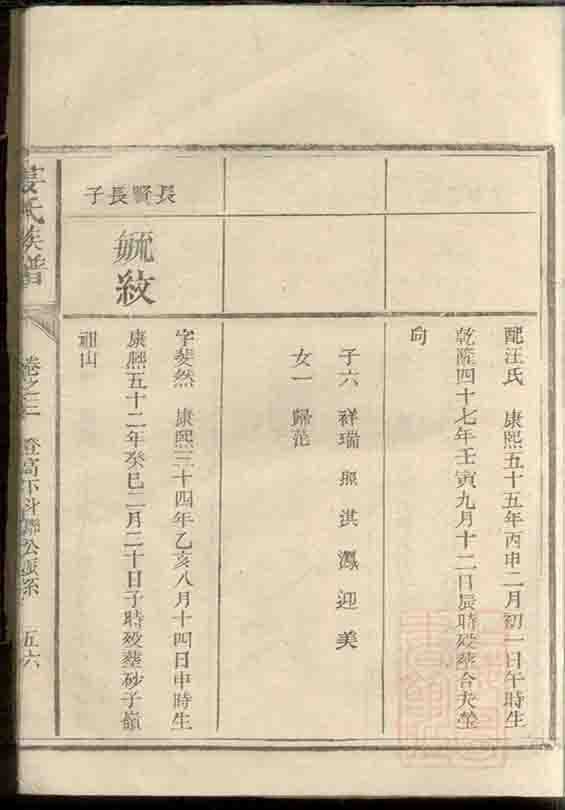 配汪氏 康熙五十五年丙申二月初一日午時生
乾隆四十七年壬寅九月十二日辰時歿葬合夫塋
向
子六 祥瑞 照 淇 鳳 迎 美
女一 歸范
長賢長子
毓紋
字斐然 康熙三十四年乙亥八月十四日申時生
康熙五十二年癸巳二月二十日子時歿葬砂子嶺
祖山
姜氏族譜
卷之三 登高下斗聯公派系 五六